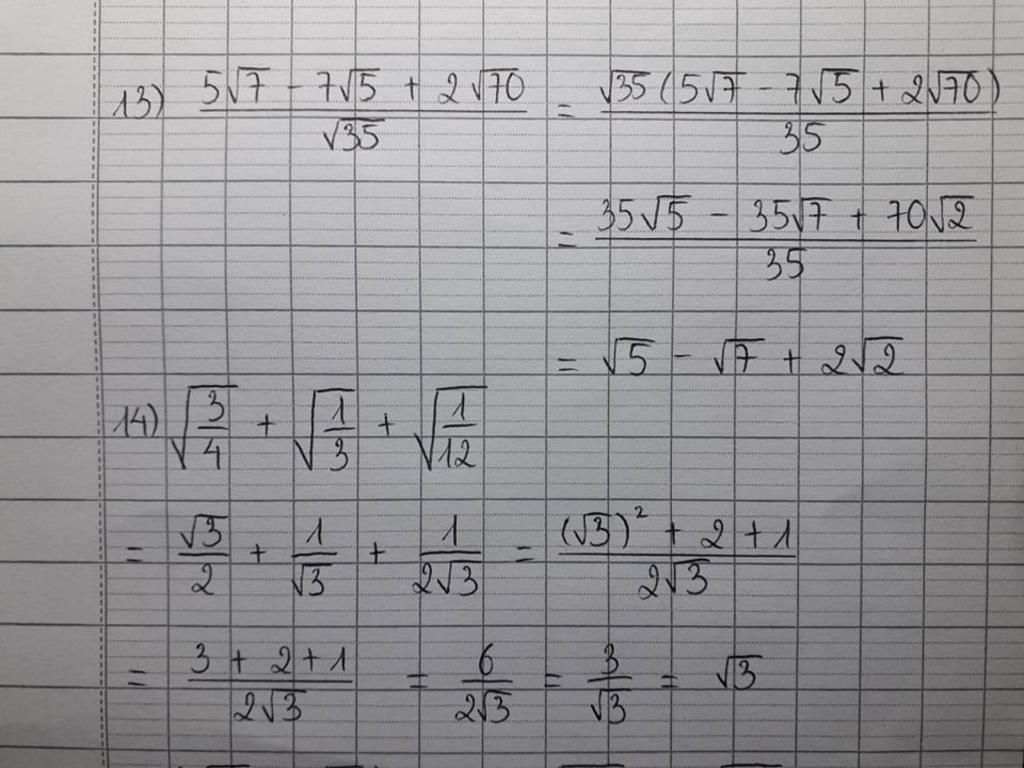 13) (5√7 - 7√5 + 2√70)/√35 = √35(5√7 - 7√5 + 2√70)/35
= (35√5 - 35√7 + 70√2)/35
= √5 - √7 + 2√2
14) √(3/4) + √(1/3) + √(1/12)
= √3/2 + 1/√3 + 1/(2√3) = ((√3)² + 2 + 1)/(2√3)
= (3 + 2 + 1)/(2√3) = 6/(2√3) = 3/√3 = √3